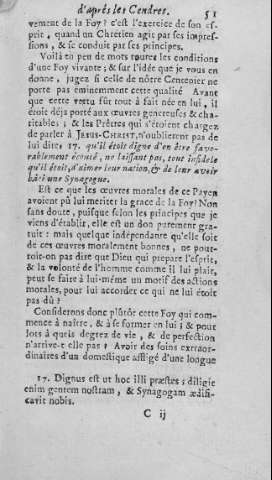 d'aprés les Cendres. 51
vement de la Foy ? c'est l'exercice de son es-
prit, quand un Chrétien agit par ses impres-
sions, & se conduit par ses principes.
Voilà en peu de mots toutes les conditions
d'une Foy vivante ; & sur l'idée que je vous en
donne, jugez si celle de nôtre Centenier ne
porte pas éminemment cette qualité Avant
que cette vertu fût tout à fait née en lui, il
étoit déja porté aux œuvres genereuses & cha-
ritables ; & les Prêtres qui s'étoient chargez
de parler à JESUS-CHRIST, n'oublierent pas de
lui dire: 17. qu'il étoit digne d'en être favo-
rablement écouté, ne laissant pas, tout infidele
qu'il étoit, d'aimer leur nation, & de leur avoir
bâti une Synagogue.
Est ce que les œuvres morales de ce Payen
avoient pû lui meriter la grace de la Foy? Non
sans doute, puisque selon les principes que je
viens d'établir, elle est un don purement gra-
tuit : mais quelque indépendante qu'elle soit
de ces œuvres moralement bonnes, ne pour-
roit-on pas dire que Dieu qui prepare l'esprit,
& la volonté de l'homme comme il lui plaît,
peut se faire à lui-même un motif des actions
morales, pour lui accorder ce qui ne lui étoit
pas dû ?
Considerons donc plûtôt cette Foy qui com-
mence à naître, & à se former en lui ; & pour
lors à quels degrez de vie, & de perfection
n'arrive-t elle pas ? Avoir des soins extraor-
dinaires d'un domestique affligé d'une longue
17. Dignus est ut hoc illi præstes : diligit
enim gentem nostram, & Synagogam ædifi-
cavit nobis.
C ij